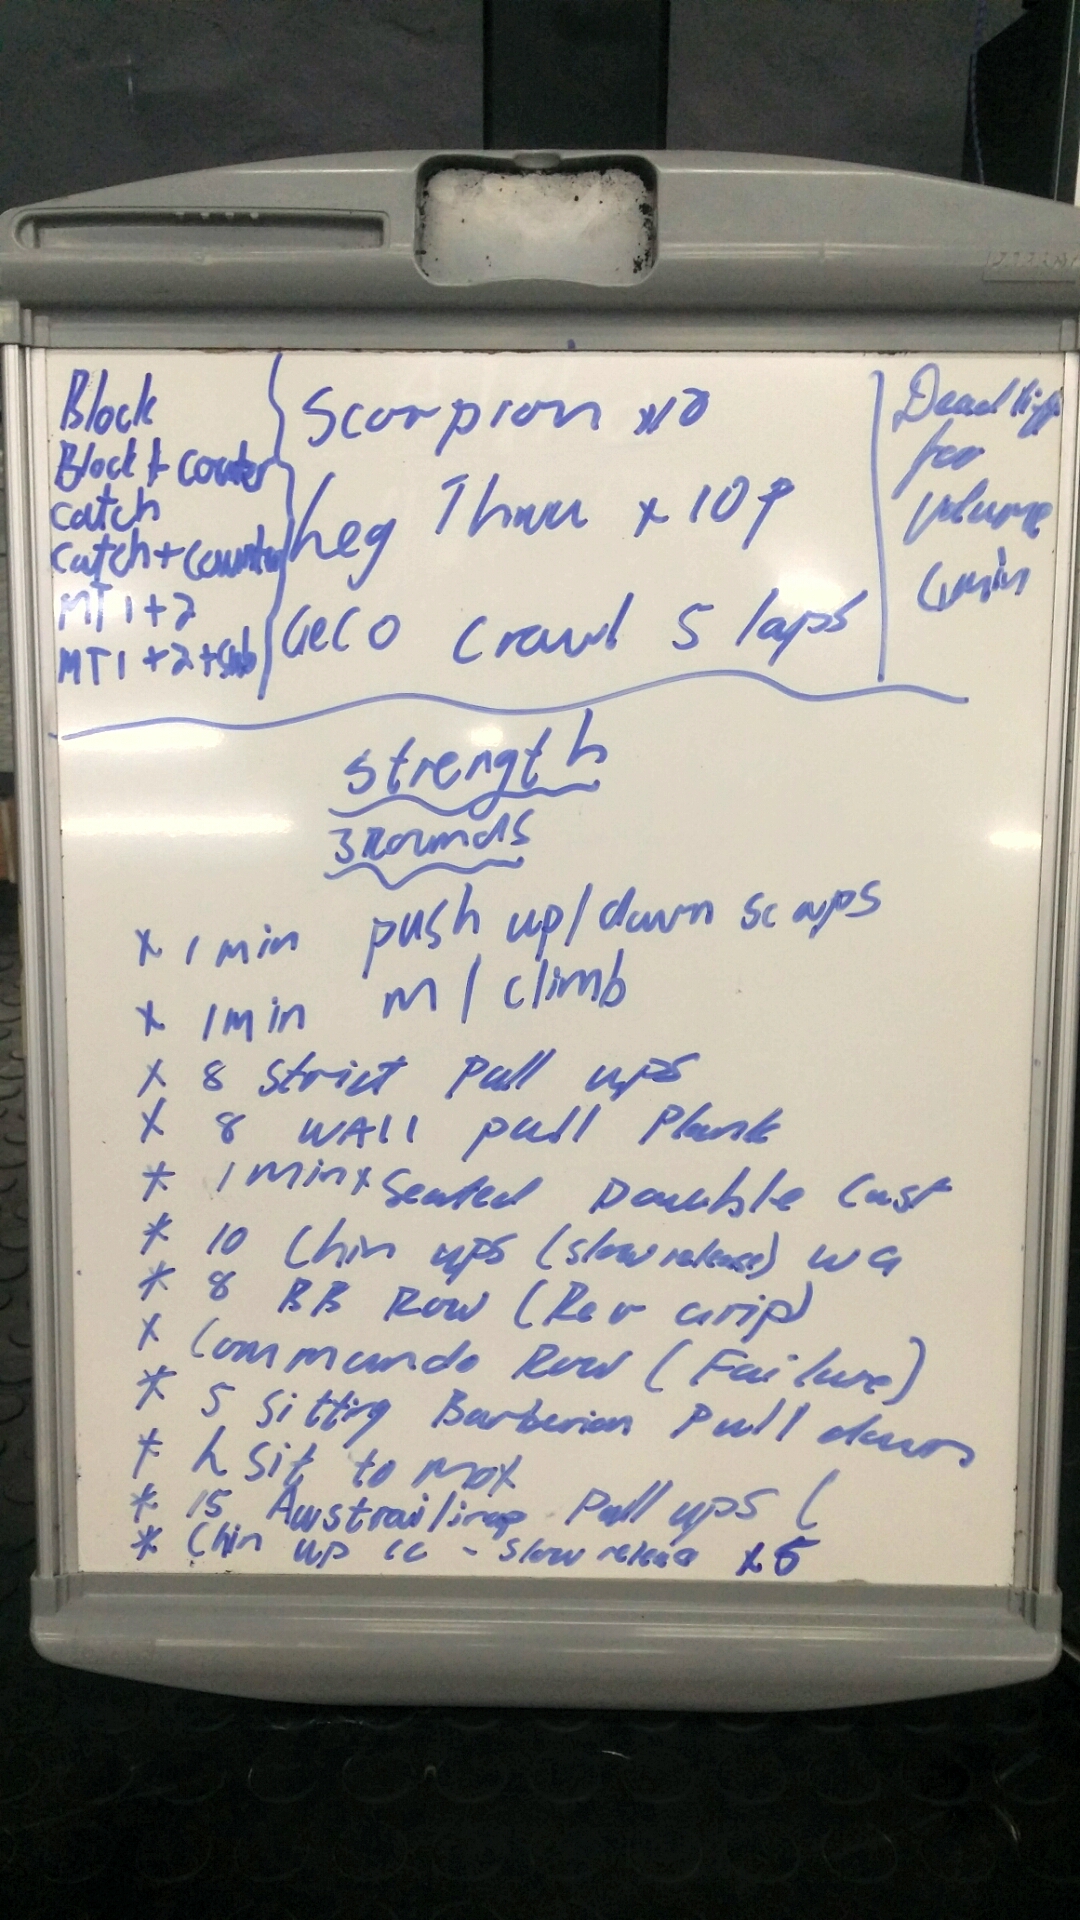 Block
Block + counter
catch
catch + counter
MT 1 + 2
MT 1 + 2 + sub
Scorpion x10
Leg Thru x 10
GeCO Crawl 5 laps
Dead lift
for
volume
min
Strength
3 Rounds
x 1 min push up/down scaps
x 1 min m/climb
x 8 Strict Pull ups
x 8 WAll pull Plank
* 1 Min x Seated Double Cast
* 10 Chin ups (slow release) WG
* 8 BB Row (Rev Grip)
x Commando Row (Failure)
* 5 Sitting Barberian Pull downs
* L Sit to max
* 15 Pull ups (
* Chin up CC - slow release x 5